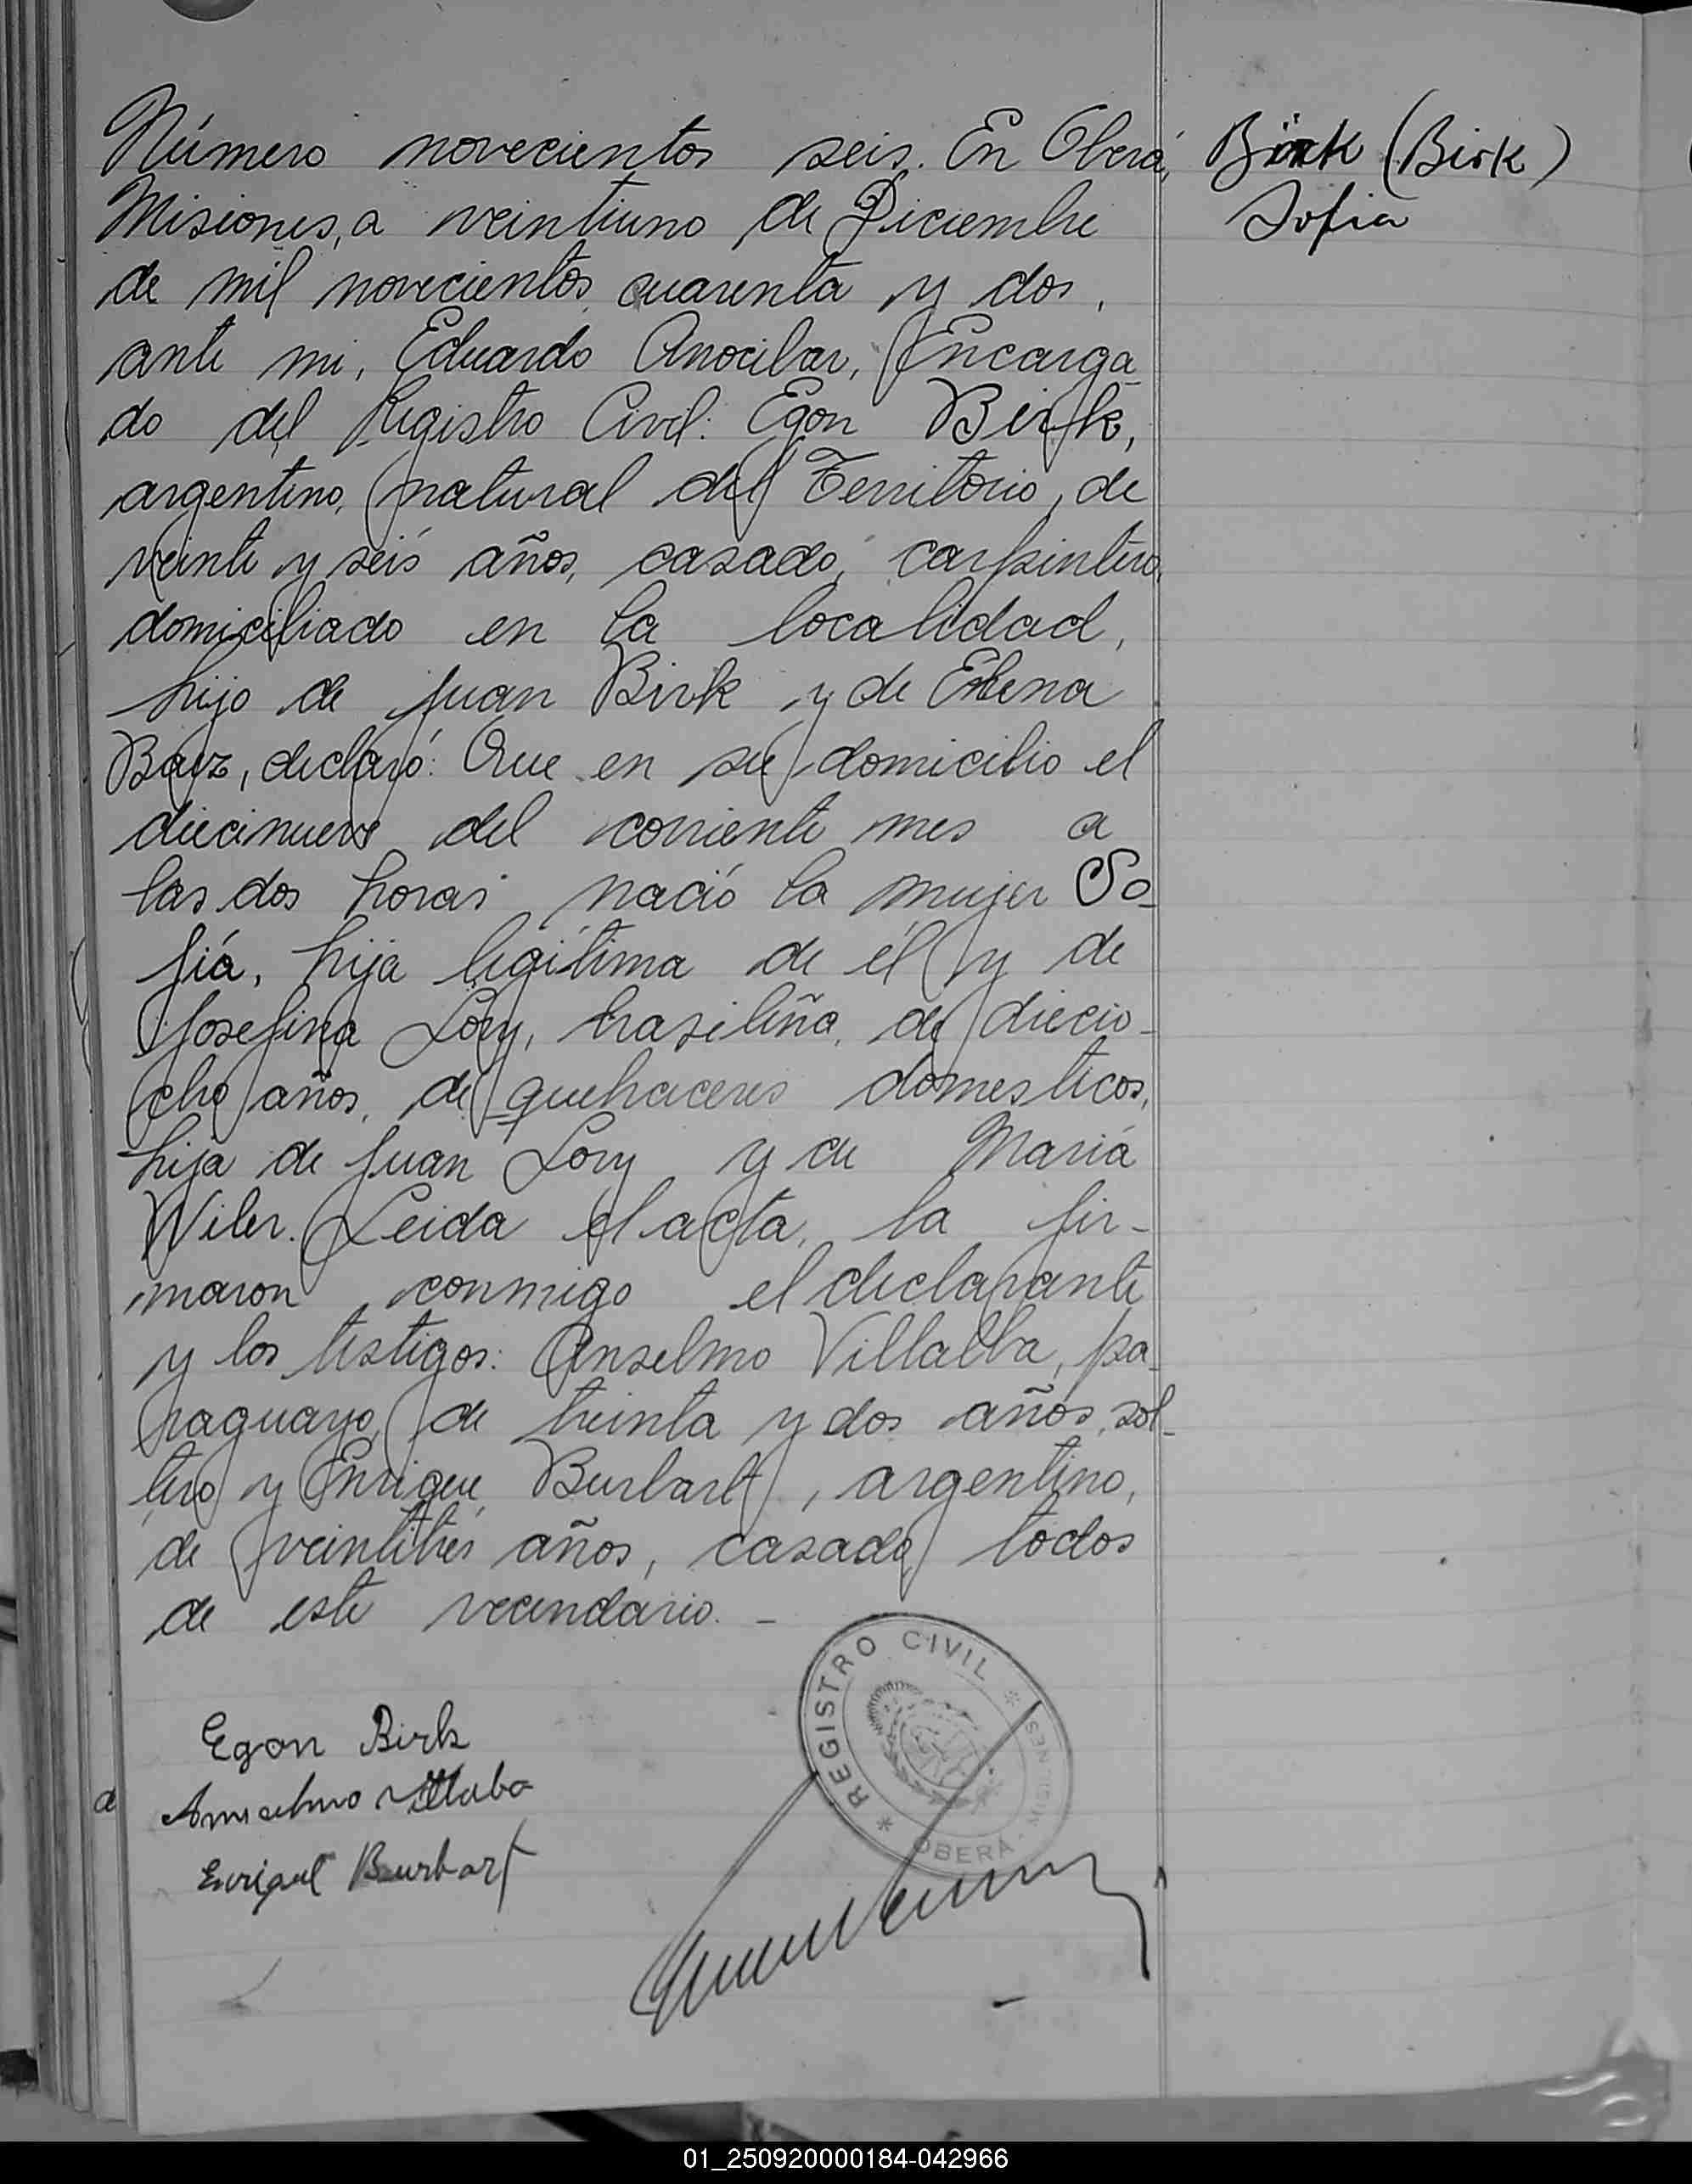 Número novecientos seis. En Oberá,
Misiones, a veintiuno de Diciembre
de mil novecientos cuarenta y dos,
ante mi, Eduardo Anocibar, Encarga
do del Registro Civil: Egon Birk,
argentino, natural del Territorio, de
veinte y seis años, casado, carpintero,
domiciliado en la localidad,
hijo de Juan Birk y de Elena
Baez, declaró: Que en su domicilio el
diecinueve del corriente mes a
las dos horas nació la mujer So_
fía, hija legítima de él y de
Josefina Lory, brasileña, de diecio_
cho años, de quehaceres domesticos,
hija de Juan Lory y de María
Wiler. Leida el acta, la fir_
maron conmigo el declarante
y los testigos: Anselmo Villalba, pa_
raguayo, de treinta y dos años, sol_
tero y Enrique Burbart, argentino,
de veintitrés años, casado, todos
de este vecindario. _
Birk (Birk)
Sofia
REGISTRO CIVIL
OBERÁ - MISIONES
Egon Birk
Anselmo Villalba
Enrique Burbart
01_250920000184-042966